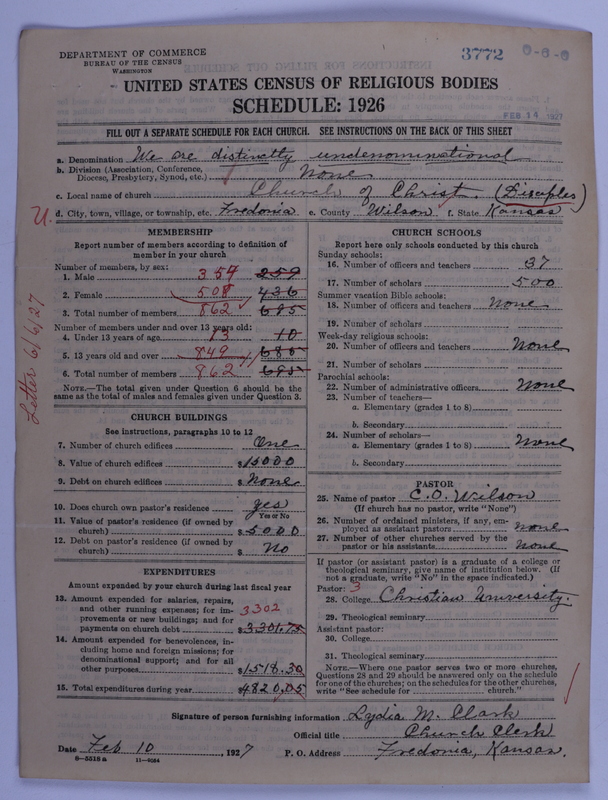 3772 0-6-0
DEPARTMENT OF COMMERCE
BUREAU OF THE CENSUS
WASHINGTON
UNITED STATES CENSUS OF RELIGIOUS BODIES
SCHEDULE: 1926
FEB 14 1927
FILL OUT A SEPARATE SCHEDULE FOR EACH CHURCH. SEE INSTRUCTIONS ON THE BACK OF THIS SHEET
a. Denomination We are distinctly undenominational
b. Division (Association, Conference,
Diocese, Presbytery, Synod, etc.) None
c. Local name of church Church of Christ. (Disciples)
U. d. City, town, village, or township, etc. Fredonia e. County Wilson f. State Kansas
Letter 6/6/27
MEMBERSHIP
Report number of members according to definition of
member in your church
Number of members, by sex:
1. Male 354 259
2. Female 508 436
3. Total number of members 862 685
Number of members under and over 13 years old:
4. Under 13 years of age 13 10
5. 13 years old and over 849 685
6. Total number of members 862 685
NOTE.—The total given under Question 6 should be the
same as the total of males and females given under Question 3.
CHURCH BUILDINGS
See instructions, paragraphs 10 to 12
7. Number of church edifices One
8. Value of church edifices $15000
9. Debt on church edifices $None
10. Does church own pastor's residence yes
Yes or No
11. Value of pastor's residence (if owned by
church) $5000
12. Debt on pastor's residence (if owned by
church) $ No
EXPENDITURES
Amount expended by your church during last fiscal year
13. Amount expended for salaries, repairs,
and other running expenses; for im-
provements or new buildings; and for
payments on church debt 3302 $3301.75
14. Amount expended for benevolences, in-
cluding home and foreign missions; for
denominational support; and for all
other purposes $1518.30
15. Total expenditures during year $4820.05
CHURCH SCHOOLS
Report here only schools conducted by this church
Sunday schools:
16. Number of officers and teachers 37
17. Number of scholars 500
Summer vacation Bible schools:
18. Number of officers and teachers None
19. Number of scholars
Week-day religious schools:
20. Number of officers and teachers None
21. Number of scholars
Parochial schools:
22. Number of administrative officers None
23. Number of teachers—
a. Elementary (grades 1 to 8)
b. Secondary
24. Number of scholars—
a. Elementary (grades 1 to 8) None
b. Secondary
PASTOR
25. Name of pastor C. O. Wilson
(If church has no pastor, write "None")
26. Number of ordained ministers, if any, em-
ployed as assistant pastors None
27. Number of other churches served by the
pastor or his assistants None
If pastor (or assistant pastor) is a graduate of a college or
theological seminary, give name of institution below. (If
not a graduate, write "No" in the space indicated.)
Pastor: 3
28. College Christian University.
29. Theological seminary
Assistant pastor:
30. College
31. Theological seminary
NOTE.—Where one pastor serves two or more churches,
Questions 28 and 29 should be answered only on the schedule
for one of the churches; on the schedules for the other churches,
write "See schedule for church."
Signature of person furnishing information Lydia M. Clark
Official title Church Clerk
Date Feb 10, 1927 P. O. Address Fredonia, Kansas.
8—5518a 11—9054